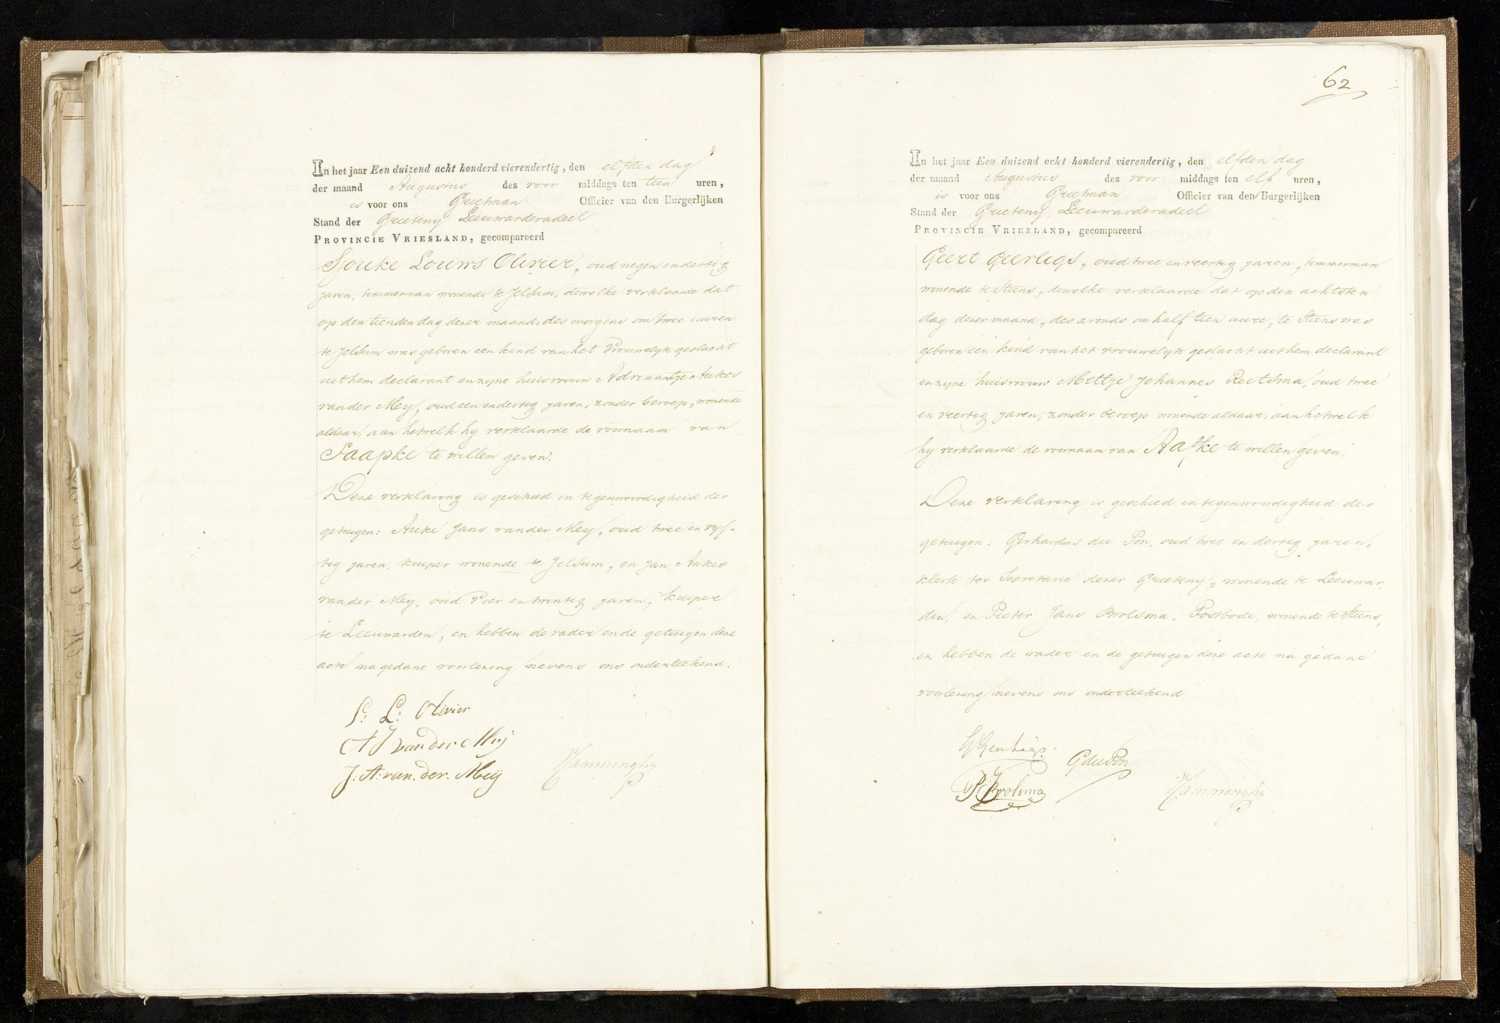 In het jaar Een duizend acht honderd vierendertig, den elfden dag
der maand Augustus des voor middags ten tien uren,
is voor ons Grietman Officier van den Burgerlijken
Stand der Grieteny Leeuwarderadeel
PROVINCIE VRIESLAND, gecompareerd
Sjouke Louws Olivier, oud negen en dertig
jaren, timmerman wonende te Jelsum, dewelke verklaarde dat
op den tienden dag dezer maand, des morgens om twee uuren
te Jelsum was geboren een kind van het vrouwelijk geslacht
uit hem declarant en zijne huisvrouw Adriaantje Aukes
van der Mey, oud een en dertig jaren, zonder beroep, wonende
aldaar, aan hetwelk hy verklaarde de voornaam van
Jaapke te willen geven.
Deze verklaring is geschied in tegenwoordigheid der
getuigen: Auke Jans van der Mey, oud twee en vyf-
tig jaren, kuiper wonende te Jelsum, en Jan Aukes
van der Mey, oud vier en twintig jaren, kuiper
te Leeuwarden, en hebben de vader en de getuigen deze
acte na gedane voorlezing nevens ons onderteekend.
S: L: Olivier
A J van der Meij
J. A. van. der. Meij
62
In het jaar Een duizend acht honderd vierendertig, den elfden dag
der maand Augustus des voor middags ten elf uren,
is voor ons Grietman Officier van den Burgerlijken
Stand der Grieteny Leeuwarderadeel
PROVINCIE VRIESLAND, gecompareerd
Geert Geerligs, oud twee en veertig jaren, timmerman
wonende te Stiens, dewelke verklaarde dat op den achtsten
dag dezer maand, des avonds om half tien uure, te Stiens was
geboren een kind van het vrouwelijk geslacht uit hem declarant
en zijne huisvrouw Mettje Johannes Reitsma, oud twee
en veertig jaren, zonder beroep wonende aldaar, aan hetwelk
hy verklaarde de voornaam van Aafke te willen geven.
Deze verklaring is geschied in tegenwoordigheid der
getuigen: Gerhardus du Pon, oud dertig jaren,
klerk ter Secretarie dezer Grieteny, wonende te Leeuwar-
den, en Pieter Jans Brolsma, Postbode, wonende te Stiens,
en hebben de vader en de getuigen deze acte na gedane
voorlezing nevens ons onderteekend
G Geerligs.
G du Pon
P J Brolsma